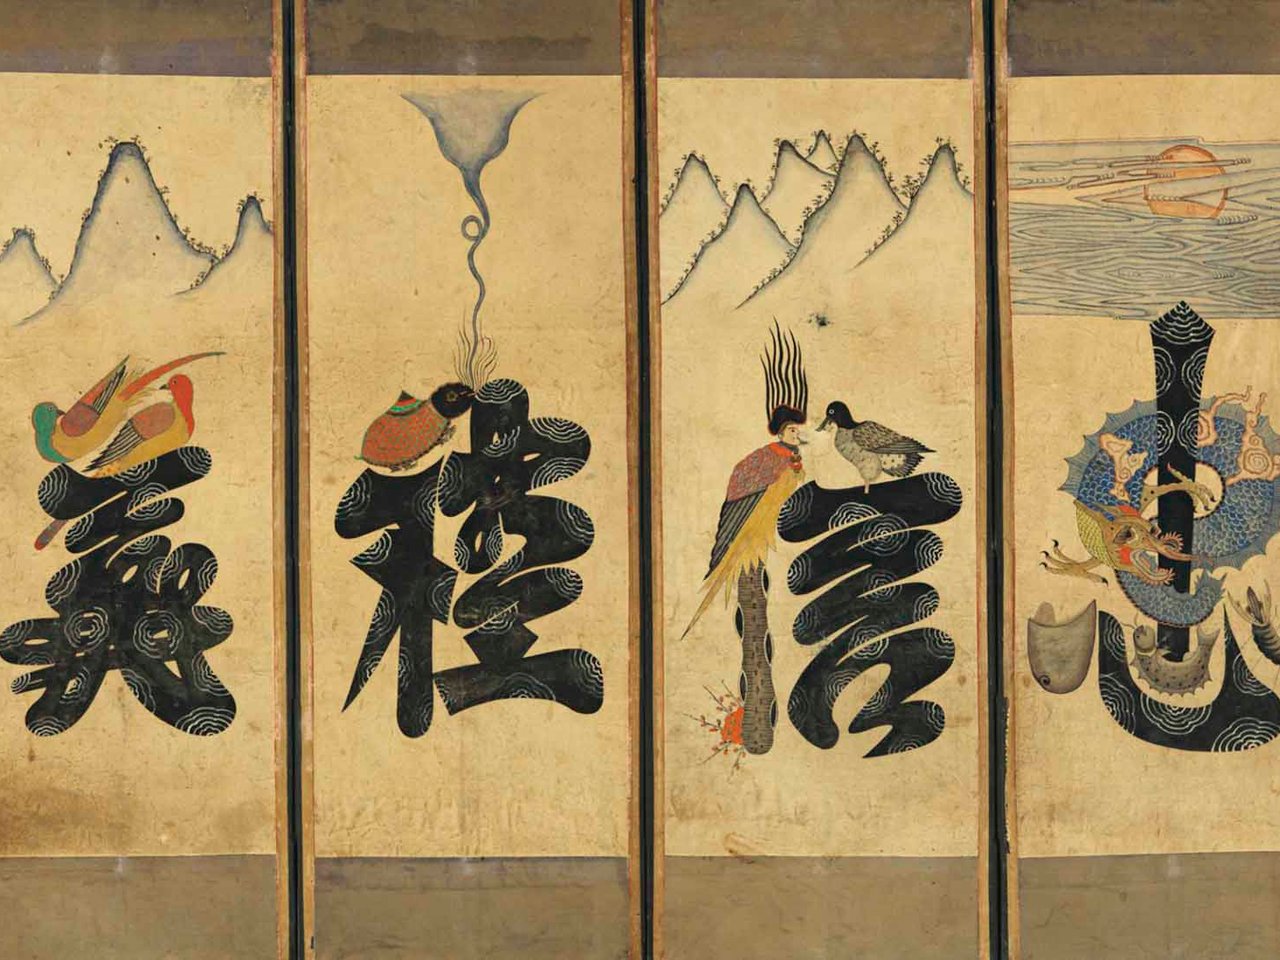 忠
信
禮
義